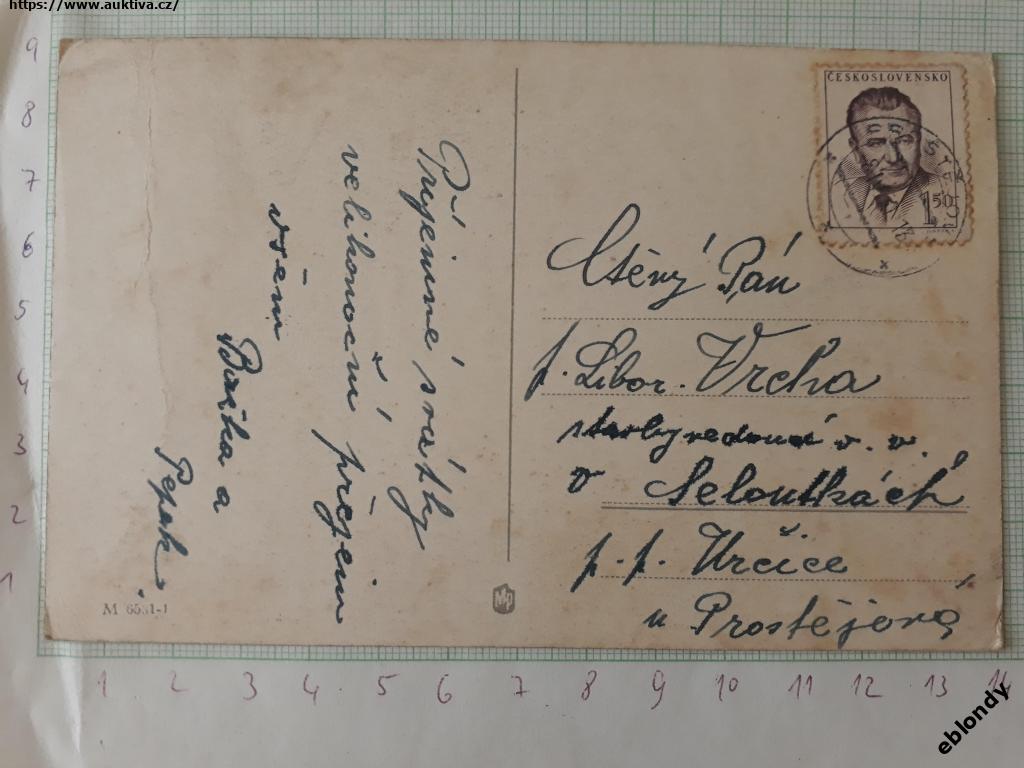 https://www.auktiva.cz/
9
8
7
6
5
4
3
2
1
Příjemné svátky
velikonoční přejem
všem
Baruška a
Pepek.
M 6551-1
MP
ČESKOSLOVENSKO
1.50
Ctěný Pán
p. Libor. Vrcha
v. v.
v Seloutkách
p. p. Určice
u Prostějova
1 2 3 4 5 6 7 8 9 10 11 12 13 14
eblondy